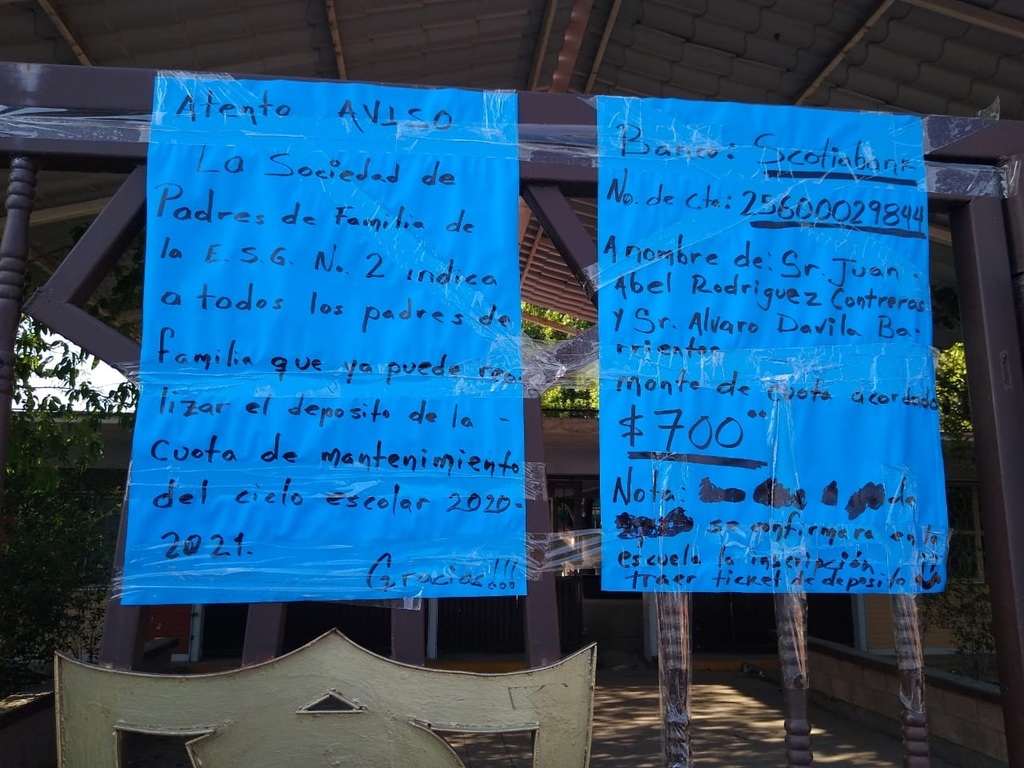 Atento AVISO
La Sociedad de
Padres de Familia de
la E.S.G. No. 2 indica
a todos los padres de
familia que ya puede rea
lizar el deposito de la -
cuota de mantenimiento
del ciclo escolar 2020-
2021.
Gracias!!!
Banco: Scotiabank
No. de cta: 25600029844
A nombre de: Sr. Juan
Abel Rodriguez Contreras
y Sr. Alvaro Davila Ba-
rrientos
monte de cuota acordado
$700°°
Nota: de
se confirmara en la
escuela la inscripción
traer ticket de deposito